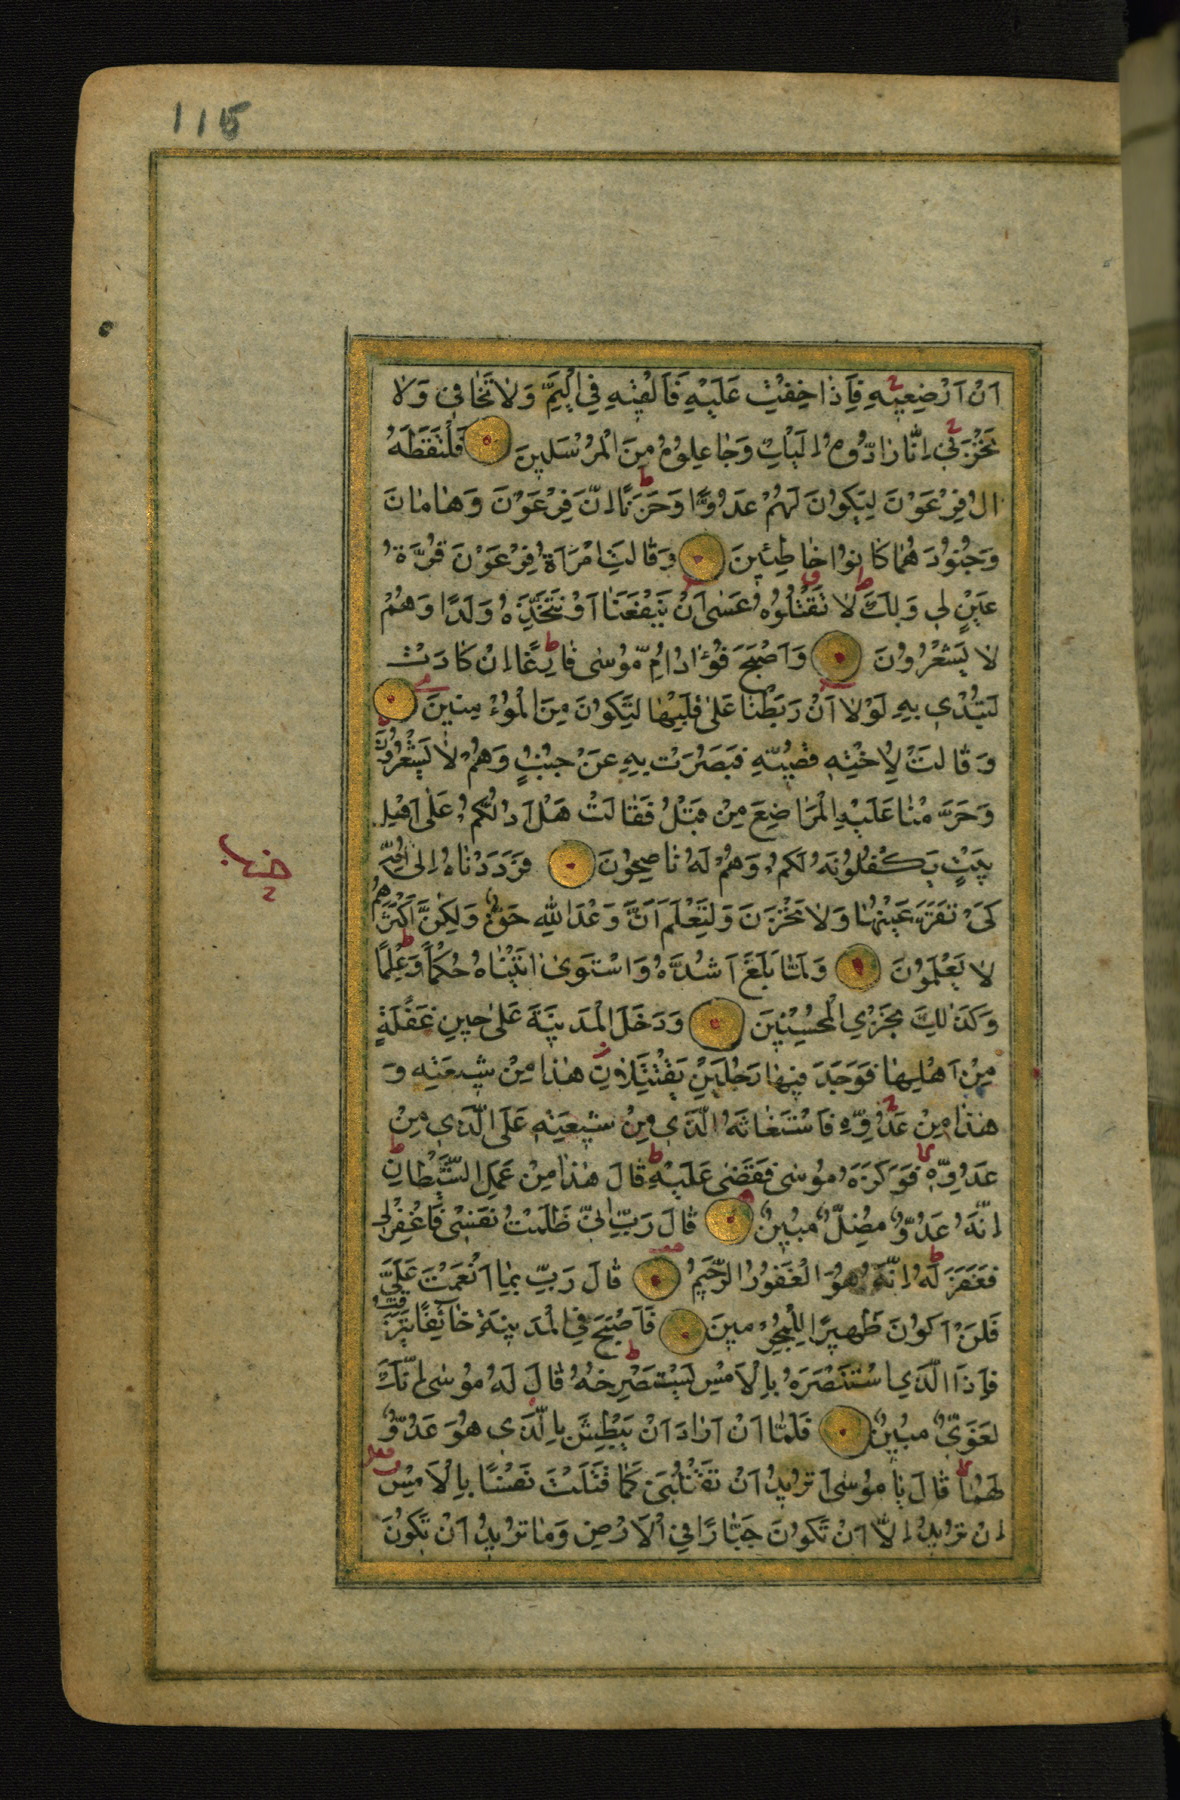 115
اَنْ اَرْضِعِيهِ فَاِذَا خِفْتِ عَلَيْهِ فَاَلْقِيهِ فِي الْيَمِّ وَلَا تَخَافِي وَلَا
تَحْزَنِي اِنَّا رَادُّوهُ اِلَيْكِ وَجَاعِلُوهُ مِنَ الْمُرْسَلِينَ فَالْتَقَطَهُ
الُ فِرْعَوْنَ لِيَكُونَ لَهُمْ عَدُوًّا وَحَزَنًا اِنَّ فِرْعَوْنَ وَهَامَانَ
وَجُنُودَهُمَا كَانُوا خَاطِئِينَ وَقَالَتِ امْرَاَةُ فِرْعَوْنَ قُرَّةُ
عَيْنٍ لِي وَلَكَ لَا تَقْتُلُوهُ عَسٰى اَنْ يَنْفَعَنَا اَوْ نَتَّخِذَهُ وَلَدًا وَهُمْ
لَا يَشْعُرُونَ وَاَصْبَحَ فُؤَادُ اُمِّ مُوسٰى فَارِغًا اِنْ كَادَتْ
لَتُبْدِي بِهِ لَوْلَا اَنْ رَبَطْنَا عَلٰى قَلْبِهَا لِتَكُونَ مِنَ الْمُؤْمِنِينَ
وَقَالَتْ لِاُخْتِهِ قُصِّيهِ فَبَصُرَتْ بِهِ عَنْ جُنُبٍ وَهُمْ لَا يَشْعُرُونَ
وَحَرَّمْنَا عَلَيْهِ الْمَرَاضِعَ مِنْ قَبْلُ فَقَالَتْ هَلْ اَدُلُّكُمْ عَلٰى اَهْلِ
بَيْتٍ يَكْفُلُونَهُ لَكُمْ وَهُمْ لَهُ نَاصِحُونَ فَرَدَدْنَاهُ اِلٰى اُمِّهِ
كَيْ تَقَرَّ عَيْنُهَا وَلَا تَحْزَنَ وَلِتَعْلَمَ اَنَّ وَعْدَ اللّٰهِ حَقٌّ وَلٰكِنَّ اَكْثَرَهُمْ
لَا يَعْلَمُونَ وَلَمَّا بَلَغَ اَشُدَّهُ وَاسْتَوٰى اٰتَيْنَاهُ حُكْمًا وَعِلْمًا
وَكَذٰلِكَ نَجْزِي الْمُحْسِنِينَ وَدَخَلَ الْمَدِينَةَ عَلٰى حِينِ غَفْلَةٍ
مِنْ اَهْلِهَا فَوَجَدَ فِيهَا رَجُلَيْنِ يَقْتَتِلَانِ هٰذَا مِنْ شِيعَتِهِ وَ
هٰذَا مِنْ عَدُوِّهِ فَاسْتَغَاثَهُ الَّذِي مِنْ شِيعَتِهِ عَلَى الَّذِي مِنْ
عَدُوِّهِ فَوَكَزَهُ مُوسٰى فَقَضٰى عَلَيْهِ قَالَ هٰذَا مِنْ عَمَلِ الشَّيْطَانِ
اِنَّهُ عَدُوٌّ مُضِلٌّ مُبِينٌ قَالَ رَبِّ اِنِّي ظَلَمْتُ نَفْسِي فَاغْفِرْ لِي
فَغَفَرَ لَهُ اِنَّهُ هُوَ الْغَفُورُ الرَّحِيمُ قَالَ رَبِّ بِمَا اَنْعَمْتَ عَلَيَّ
فَلَنْ اَكُونَ ظَهِيرًا لِلْمُجْرِمِينَ فَاَصْبَحَ فِي الْمَدِينَةِ خَائِفًا يَتَرَقَّبُ
فَاِذَا الَّذِي اسْتَنْصَرَهُ بِالْاَمْسِ يَسْتَصْرِخُهُ قَالَ لَهُ مُوسٰى اِنَّكَ
لَغَوِيٌّ مُبِينٌ فَلَمَّا اَنْ اَرَادَ اَنْ يَبْطِشَ بِالَّذِي هُوَ عَدُوٌّ
لَهُمَا قَالَ يَا مُوسٰى اَتُرِيدُ اَنْ تَقْتُلَنِي كَمَا قَتَلْتَ نَفْسًا بِالْاَمْسِ
اِنْ تُرِيدُ اِلَّا اَنْ تَكُونَ جَبَّارًا فِي الْاَرْضِ وَمَا تُرِيدُ اَنْ تَكُونَ